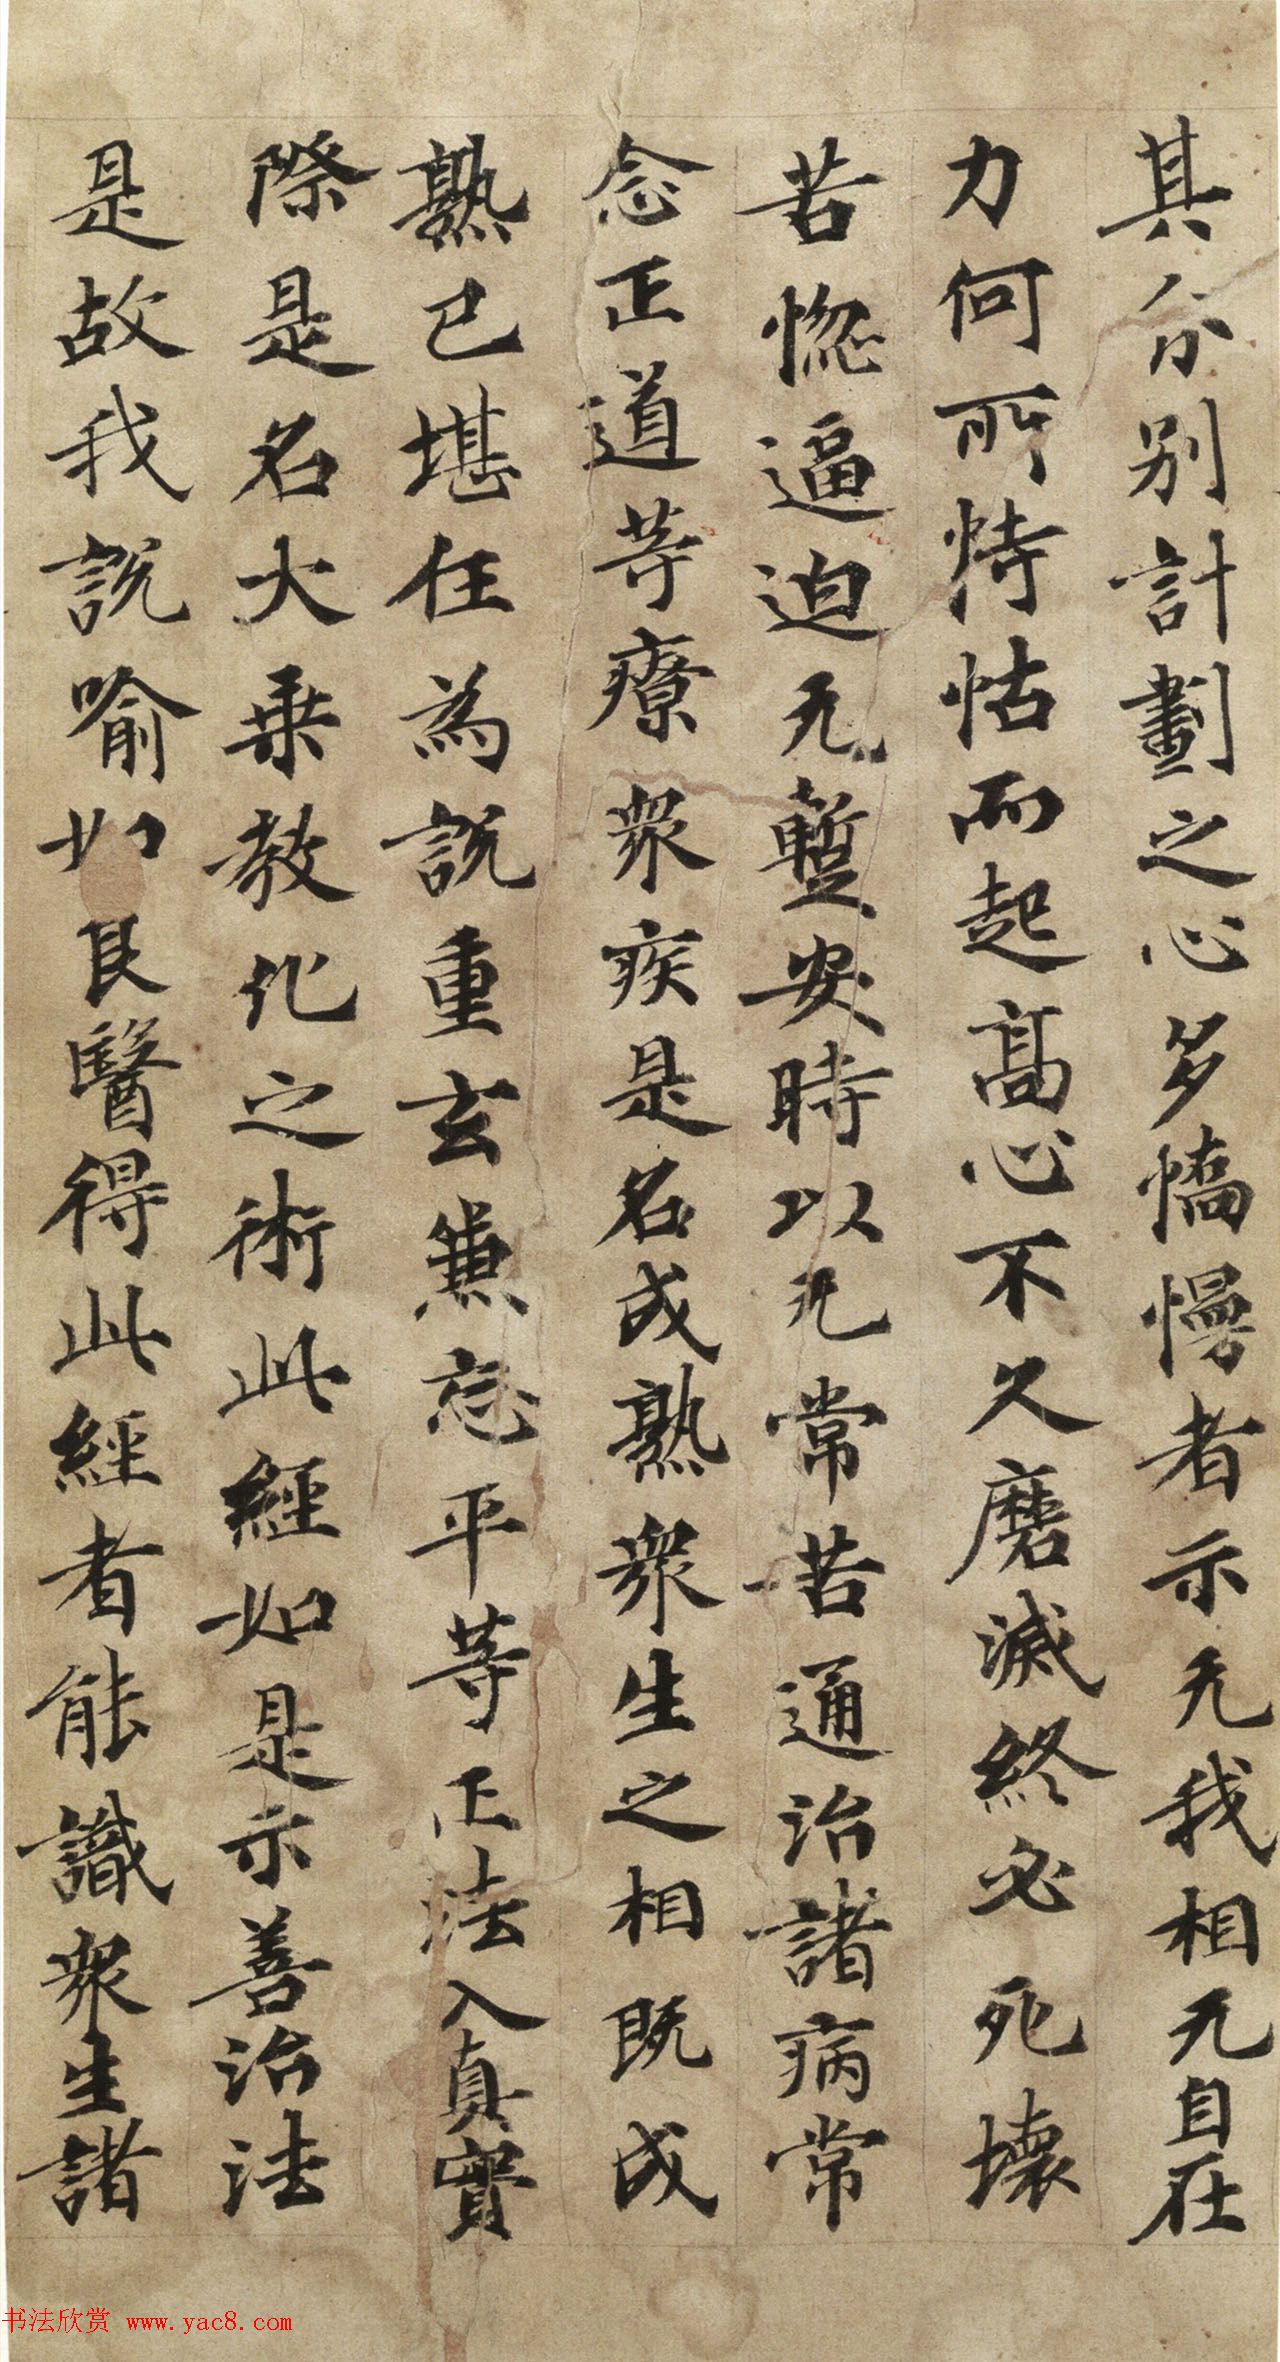 其分別計劃之心多憍慢者示无我相无自在
力何所恃怙而起髙心不久磨滅終必死壞
苦惚逼迫无蹔安時以无常苦通治諸病常
念正道等療衆疾是名成熟衆生之相既成
熟已堪任為說重玄兼忘平等正法入真實
際是名大乗教化之術此經如是示善治法
是故我說喻如良醫得此經者能識衆生諸
书法欣赏 www.yac8.com